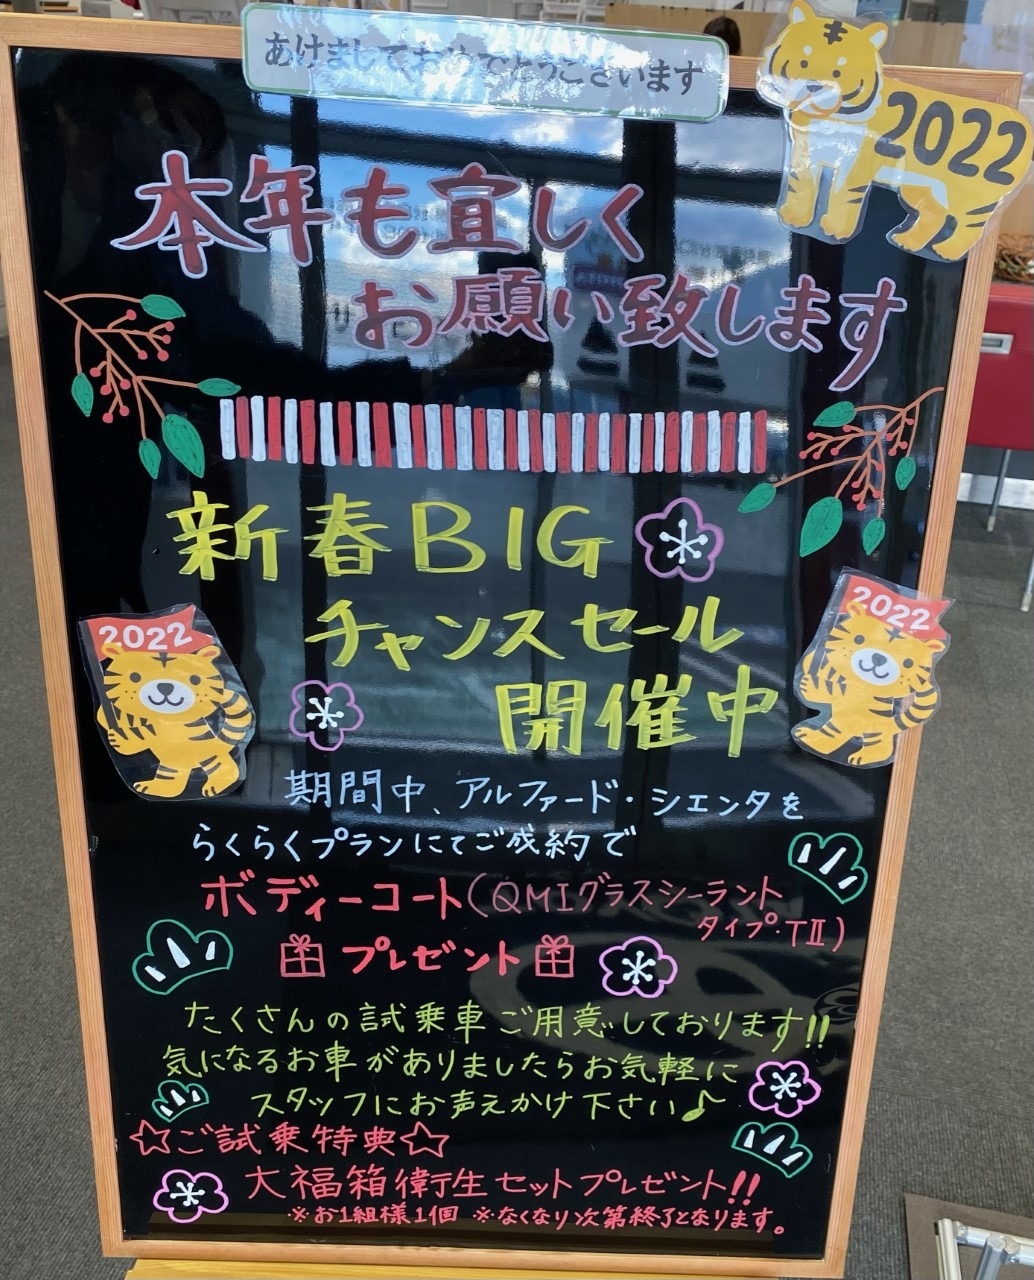 あけましておめでとうございます
2022
本年も宜しく
お願い致します
新春BIG
チャンスセール
開催中
2022
2022
期間中、アルファード・シエンタを
らくらくプランにてご成約で
ボディーコート(QMIグラスシーラント
タイプ・TⅡ)
プレゼント
たくさんの試乗車ご用意しております!!
気になるお車がありましたらお気軽に
スタッフにお声えかけ下さい♪
☆ご試乗特典☆
大福箱衛生セットプレゼント!!
※お1組様1個 ※なくなり次第終了となります。